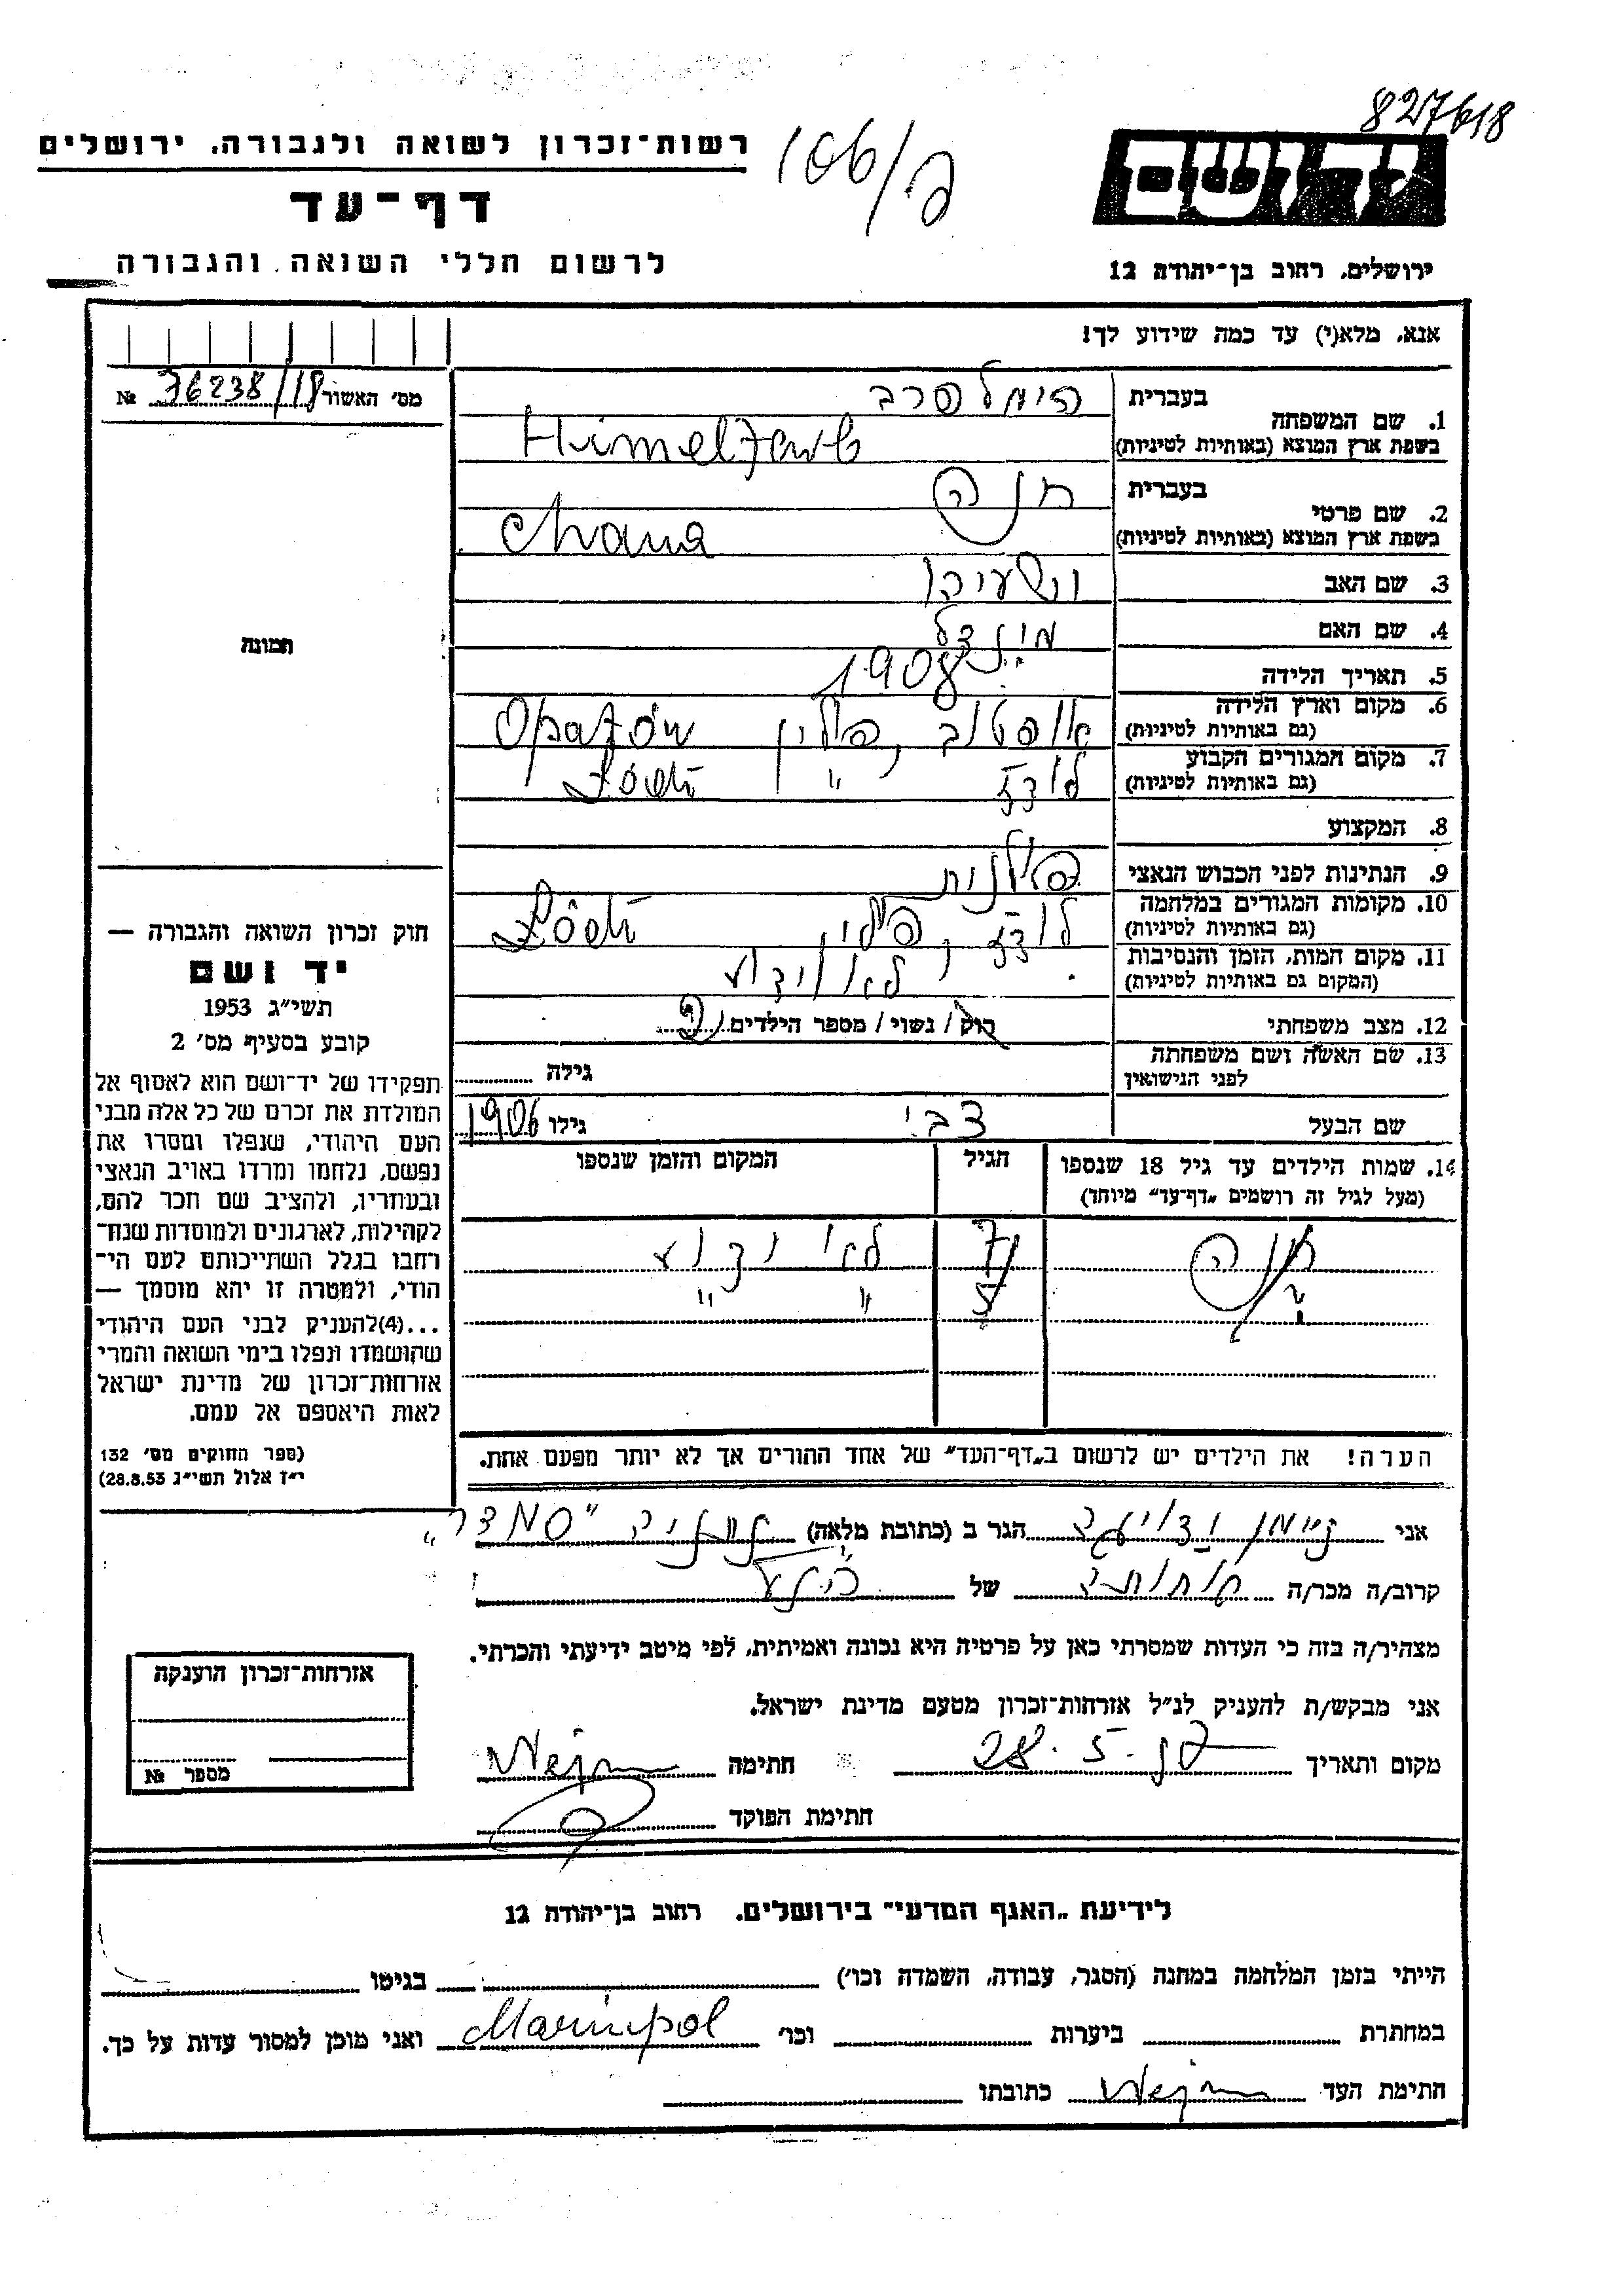 827618
יד ושם
רשות־זכרון לשואה ולגבורה, ירושלים
דף־עד
לרשום חללי השואה והגבורה
ירושלים, רחוב בן־יהודה 12
אנא, מלא(י) עד כמה שידוע לך!
מס׳ האשור 76238/18 №
1. שם המשפחה בעברית הימלפרב
בשפת ארץ המוצא (באותיות לטיניות) Himelfarb
2. שם פרטי בעברית חנה
בשפת ארץ המוצא (באותיות לטיניות) Chana
3. שם האב ישעיהו
4. שם האם מינדל
5. תאריך הלידה 1908
6. מקום וארץ הלידה (גם באותיות לטיניות) אופטוב, פולין Opatów
7. מקום המגורים הקבוע (גם באותיות לטיניות) לודז " Łódź
8. המקצוע
9. הנתינות לפני הכבוש הנאצי פולנית
10. מקומות המגורים במלחמה (גם באותיות לטיניות) לודז, פולין Łódź
11. מקום המות, הזמן והנסיבות (המקום גם באותיות לטיניות) לא ידוע
12. מצב משפחתי רוק / נשוי / מספר הילדים 2
13. שם האשה ושם משפחתה לפני הנישואין גילה
שם הבעל צבי גילו 1906
14. שמות הילדים עד גיל 18 שנספו (מעל לגיל זה רושמים „דף־עד" מיוחד) הגיל המקום והזמן שנספו
חנה 7 לא ידוע
? 5 " "
הערה! את הילדים יש לרשום ב„דף־העד" של אחד ההורים אך לא יותר מפעם אחת.
תמונה
חוק זכרון השואה והגבורה —
יד ושם
תשי״ג 1953
קובע בסעיף מס׳ 2
תפקידו של יד־ושם הוא לאסוף אל
המולדת את זכרם של כל אלה מבני
העם היהודי, שנפלו ומסרו את
נפשם, נלחמו ומרדו באויב הנאצי
ובעוזריו, ולהציב שם וזכר להם,
לקהילות, לארגונים ולמוסדות שנח־
רבו בגלל השתייכותם לעם הי־
הודי, ולמטרה זו יהא מוסמך —
...(4)להעניק לבני העם היהודי
שהושמדו ונפלו בימי השואה והמרי
אזרחות־זכרון של מדינת ישראל
לאות היאספם אל עמם.
(ספר החוקים מס׳ 132
י״ז אלול תשי״ג 28.8.53)
אני הגר ב (כתובת מלאה) נתניה "סמדר"
קרוב/ה מכר/ה של
מצהיר/ה בזה כי העדות שמסרתי כאן על פרטיה היא נכונה ואמיתית, לפי מיטב ידיעתי והכרתי.
אני מבקש/ת להעניק לנ״ל אזרחות־זכרון מטעם מדינת ישראל.
מקום ותאריך 28.5.57 חתימה
חתימת הפוקד
אזרחות־זכרון הוענקה
מספר №
לידיעת „האגף המדעי" בירושלים, רחוב בן־יהודה 12
הייתי בזמן המלחמה במחנה (הסגר, עבודה, השמדה וכו׳) בגיטו
במחתרת ביערות וכו׳ Marinpol ואני מוכן למסור עדות על כך.
חתימת העד כתובתו